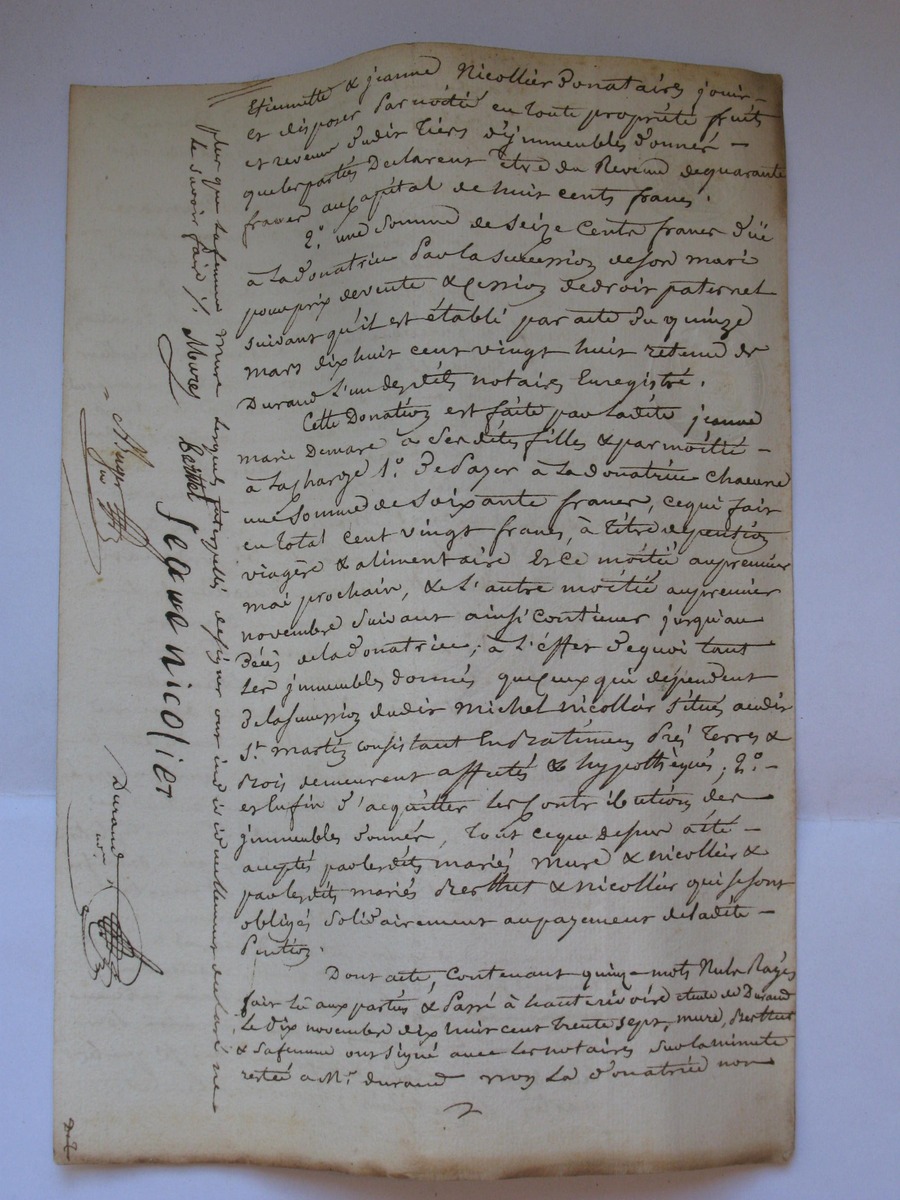 Etiennette & jeanne Nicollier Donataires jouir
et disposer par moitié en toute propriété fruits
et revenus dudit tiers d'jmmeubles donnés
que les parties Declarent Etre du Revenu de quarante
francs au Capital de huit cents francs.
2.° une Somme de Seize Cents francs düe
à la donatrice Par la succession de son mari
pour prix de vente & cession de droit paternel
suivant qu'il est établi par acte du quinze
mars dix huit cent vingt huit retenu de
Durand L'un desdits notaires Enregistré.
Cette Donation est faite par Ladite jeanne
marie Demare à Ses dites filles & par moitié
à la charge 1.° De Payer à La donatrice chacune
une Somme de Soixante francs, ce qui fait
en total cent vingt francs, à titre de pention
viagère & alimentaire Et ce moitié au premier
mai prochain, & L'autre moitié au premier
novembre Suivant ainsi continuer jusqu'au
Décès de la donatrice; à L'effet de quoi tant
Les jmmeubles donnés que ceux qui dépendent
De la succession dudit Michel Nicollier situés audit
St. martin consistant En Batimens Prés Terres &
Bois demeurent affectés & hypothéqués; 2.°
et Enfin d'acquitter les Contributions des
jmmeubles donnés, Tout ce que dessus a été
accepté par lesdits mariés Mure & nicollier &
par lesdits mariés Berthet & nicollier qui se sont
obligés Solidairement au payement de ladite
Pention.
Dont acte, Contenant quinze mots Nuls Rayés
fait lû aux parties & Passé à hauterivoire étude de Durand
Le dix novembre dix huit cent trente sept, mure, Berthet
& Sa femme ont signé avec les notaires sur la minute
restée a Mr. durand non La donatrice non
plus que sa femme Mure lesquels interpellés de signer ont individuellement déclaré ne
le savoir faire /.
Mures
Bertet
Jeane nicolier
Durand